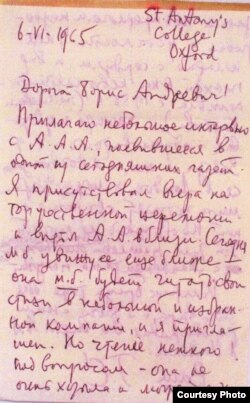 6-VI-1965
St. Antony's
College
Oxford
Дорогой Борис Андреевич
Прилагаю небольшое интервью
с А.А.А., появившееся в
одной из сегодняшних газет.
Я присутствовал вчера на
торжественной церемонии
и видел А.А. вблизи. Сегодня
м.б. увижу ее еще ближе –
она м.б. будет читать свои
стихи в небольшой и избран-
ной компании, и я пригла-
шен. Но чтение немного
под вопросом – она не
очень хорошо
Courtesy Photo